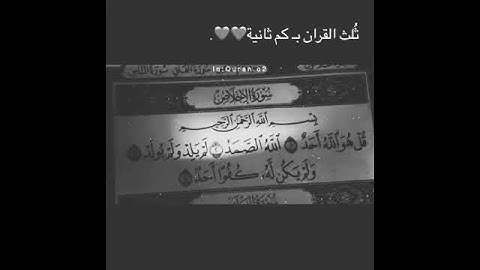 ثُلث القران بـ كم ثانية🩶🩶.
in:Quran.o2
سُورَةُ الإِخْلَاصِ
بِسْمِ اللَّهِ الرَّحْمَٰنِ الرَّحِيمِ
قُلْ هُوَ اللَّهُ أَحَدٌ ١ اللَّهُ الصَّمَدُ ٢ لَمْ يَلِدْ وَلَمْ يُولَدْ ٣
وَلَمْ يَكُن لَّهُ كُفُوًا أَحَدٌ ٤